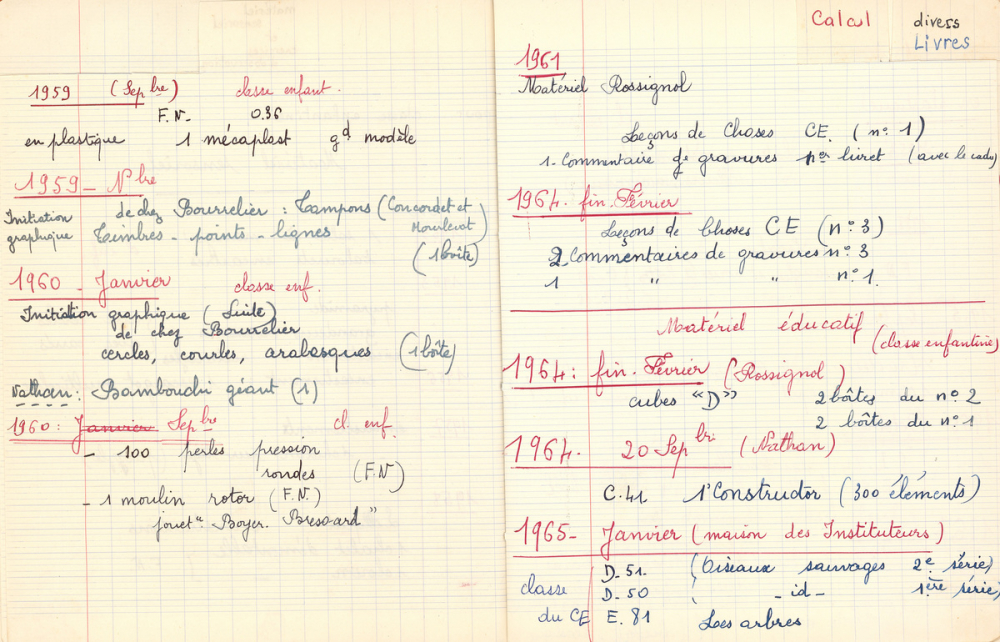 1959 (Sepbre) classe enfant.
F.N. 0.36
en plastique 1 mécaplast gd modèle
1959 - Nbre
Initiation graphique
de chez Bourrelier : Tampons (Concordet et Mourlevat)
Timbres - points - lignes
(1 boîte)
1960 - Janvier classe enf.
Initiation graphique (Suite)
de chez Bourrelier
cercles, courles, arabasques (1 bôite)
Nathan : Bamboudri géant (1)
1960 : Janvier Sepbre cl. enf.
- 100 perles pression
rondes (F.N)
- 1 moulin rotor (F.N.)
jouet "Boyer. Bressard"
Calcul divers
Livres
1961
Matériel Rossignol
Leçons de Choses CE. (n° 1)
1 - Commentaire de gravures 1er livret (avec le cadre)
1964. fin. Février
Leçons de Choses CE (n° 3)
2 Commentaires de gravures n° 3
1 " " n° 1.
Matériel éducatif (classe enfantine)
1964 : fin. Février (Rossignol)
cubes "D" 2 bôites du n° 2
2 bôites du n° 1
1964. 20 Sepbre (Nathan)
C.41 1 Constructor (300 éléments)
1965 - Janvier (maison des Instituteurs)
classe du CE
D. 51. (Oiseaux sauvages 2e série)
D. 50 ( - id - 1ère série)
E. 81 Les arbres